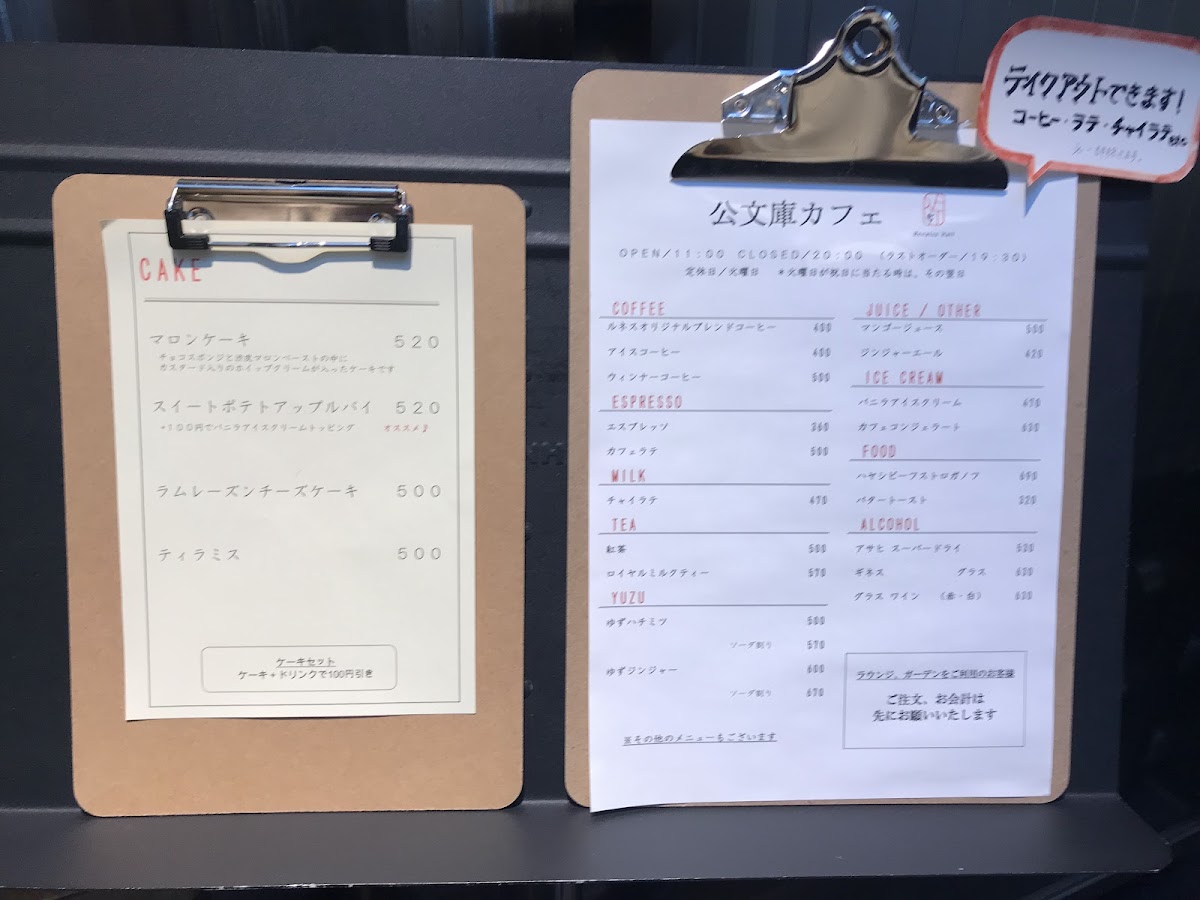 CAKE
マロンケーキ 520
チョコスポンジと渋皮マロンペーストの中に
カスタード入りのホイップクリームが入ったケーキです
スイートポテトアップルパイ 520
+100円でバニラアイスクリームトッピング オススメ♪
ラムレーズンチーズケーキ 500
ティラミス 500
ケーキセット
ケーキ+ドリンクで100円引き
テイクアウトできます!
コーヒー・ラテ・チャイラテ
公文庫カフェ
OPEN/11:00 CLOSED/20:00 (ラストオーダー/19:30)
定休日/火曜日 *火曜日が祝日に当たる時は、その翌日
COFFEE
ルネスオリジナルブレンドコーヒー 400
アイスコーヒー 400
ウィンナーコーヒー 500
ESPRESSO
エスプレッソ 360
カフェラテ 500
MILK
チャイラテ 470
TEA
紅茶 500
ロイヤルミルクティー 570
YUZU
ゆずハチミツ 500
ソーダ割り 570
ゆずジンジャー 600
ソーダ割り 670
※その他のメニューもございます
JUICE / OTHER
マンゴージュース 500
ジンジャーエール 420
ICE CREAM
バニラアイスクリーム 470
カフェコンジェラート 630
FOOD
ハヤシビーフストロガノフ 690
バタートースト 320
ALCOHOL
アサヒ スーパードライ
ギネス グラス 630
グラス ワイン (赤・白) 630
ラウンジ、ガーデンをご利用のお客様
ご注文、お会計は
先にお願いいたします